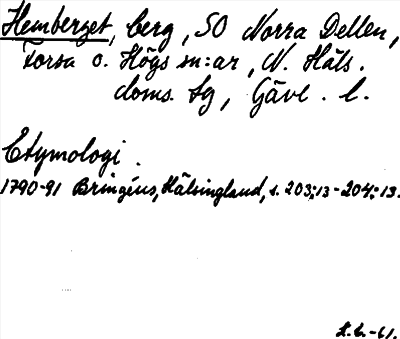 Hemberget, berg, SO Norra Dellen,
Forsa o. Högs sn:ar, N. Häls.
doms. sg, Gävl. l.
Etymologi.
1790-91 Bringéus, Hälsingland, s. 203:13-204:13.
L.L.-61.